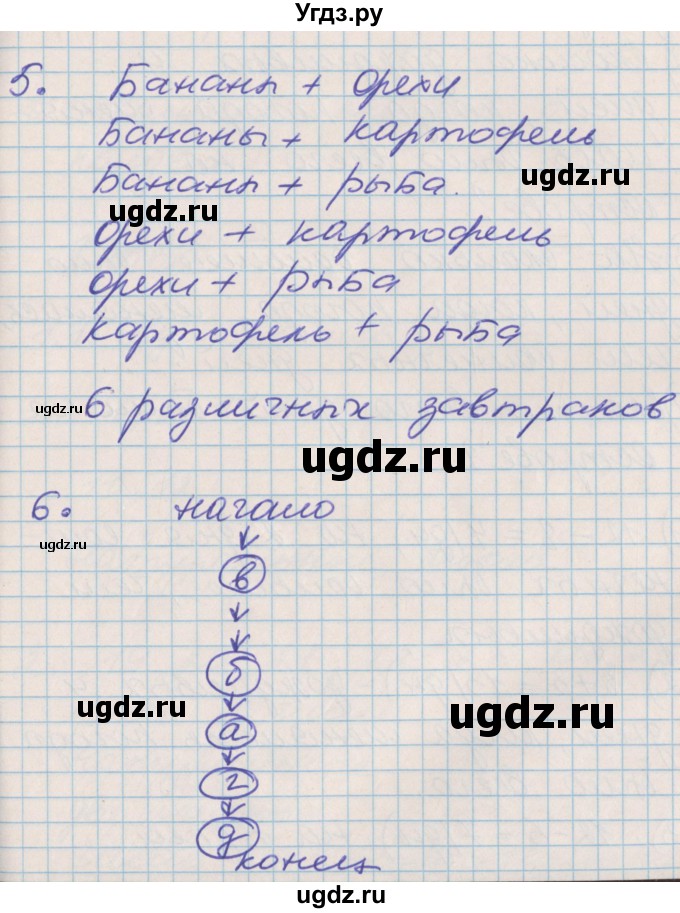 Угдз.ру
5. Бананы + орехи
ugdz.ru
Бананы + картофель
Бананы + рыба.
ugdz.ru
ugdz.ru
орехи + картофель
орехи + рыба
картофель + рыба
ugdz.ru
6 различных завтраков
ugdz.ru
6. начало
ugdz.ru
в
б
ugdz.ru
ugdz.ru
а
г
д
конец
ugdz.ru